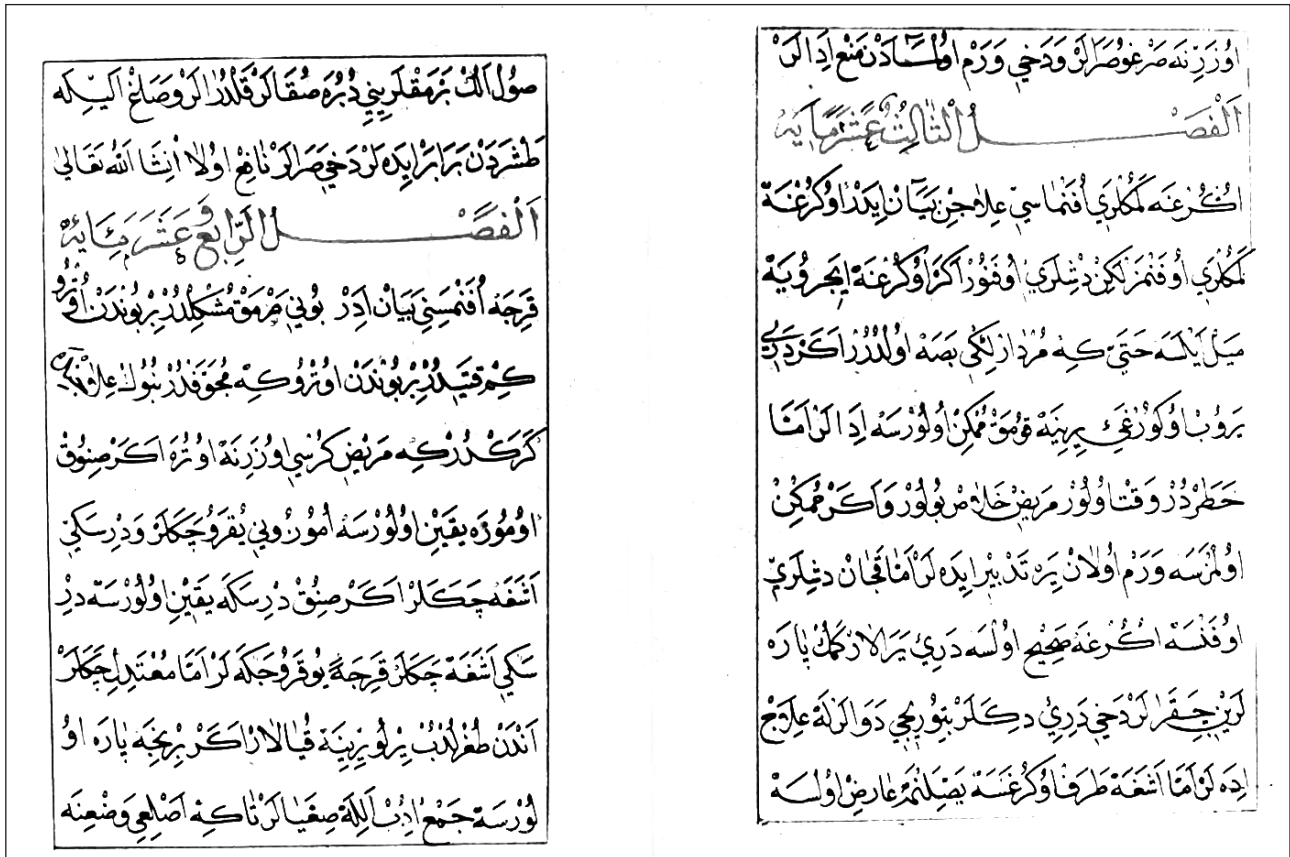 اوُزَرِنَه صَرغُو صَرَالَرْ وَدَخِي وَرَم اوُلْمَادَنْ مَنْع اِدَالَرْ
اَلْفَصْلُ الْثَالِثُ عَشَرَ مِايَه
اكُرْغَنَه كَمُكلَرِي اُفَنْمَاسِي عِلاجِنْ بَيَانْ ايدَرْ اوُكُرْغَنَه
كَمُكلَرِي اُوفَنْمَز لَكِنْ دِشْلَرِي اُوفَنُورْ اَكَرْ اوُكُرْغَنَه اِيچَرُويَه
مَيْل اَيْلَسَه حَتَى كِه مُرْدَار اِلِكِي بَصَه اوُلْدُرُرْ اَكَرْ دَرِيي
يَرُوبْ اوُكُورْغَيِ يِرِينَه قوُمَقْ مُمْكِنْ اوُلُورْسَه اِدَالَرْ اَمَّا
خَطَرْدُرْ وَقْتَا اوُلُورْ مَرِيضْ خَلاصْ بوُلُورْ وَاكَرْ مُمْكِنْ
اوُلْمَزسَه وَرَم اوُلانْ يِرَه تَدْبِيرْ ايدَه لَرْ اَمَّا قَچَانْ دِشْلَرِي
اوُفَنْسَه اكُرْغَه صَحِيح اوُلْسَه دَرِيِ يَرَالارْ كَمُكْ پَارَه
لَرِينْ چِقَرَالَرْ دَخِي دَرِيِ دِكَلَرْ بِتوُرِيجِي دَوَالَرْلَه عِلاجْ
اِدَه لَرْ اَمَّا اَشَغَه طَرَف اوُكُرْغَسَه عَارِضْ اوُلْسَه
صوُل اَلُكْ بَرْمَقْلَرِينِي دُبُرَه صُقَالَرْ قَلْدُرَالَرْ وَصَاغْ اَلِيلَه
طَشَرَدَنْ بَرَابَرْ ايدَه لَرْ دَخِي صَرَالَرْ نَافِعْ اوُلا اِنْشَا اَللهُ تَعَالَى
اَلْفَصْلُ الرَّابِعُ عَشَرَ مِايَه
قَرِجَه اُفَنْمَسِنِي بَيَانْ اِدَرْ بوُنِي صَرْمَقْ مُشْكِلْدُرْ بِرْ بوُنْدَنْ اوُتُرُو
كِمْ بِرْ بوُنْدَنْ اوُتُرُو كِه مُجَوَّفْدُرْ بُنُوكْ عِلاجِنْدَه
كَرَكْدُرْكِه مَرِيضْ كُرْسِي اوُزَرِنَه اوُتُرَه اَكَرْ صِنوُقْ
اوُمُوزَه يَقِينْ اوُلُورْسَه اُمُوزُونِي يُقَرُو چَكَلَرْ وَدِرْسَكِنِي
اَشَغَه چَكَلَرْ اَكَرْ صِنُقْ دِرْسَكَه يَقِينْ اوُلُورْسَه دِرْ
سَكِي اَشَغَه چَكَلَرْ قَرِجَه يِ يوُقَرُو چَكَه لَرْ اَمَّا مُعْتَدِلْ چَكَلَرْ
اَنْدَنْ طُغْرُلْدُبْ يِرْلُويِرِينَه قُيَالارْ اَكَرْ بِرْنِچَه پَارَه اوُ
لُورْسَه جَمْع اِدُبْ اَلِلَه صِغَيَالَرْ تَاكِه اَصْلِعِي وَضْعِنَه